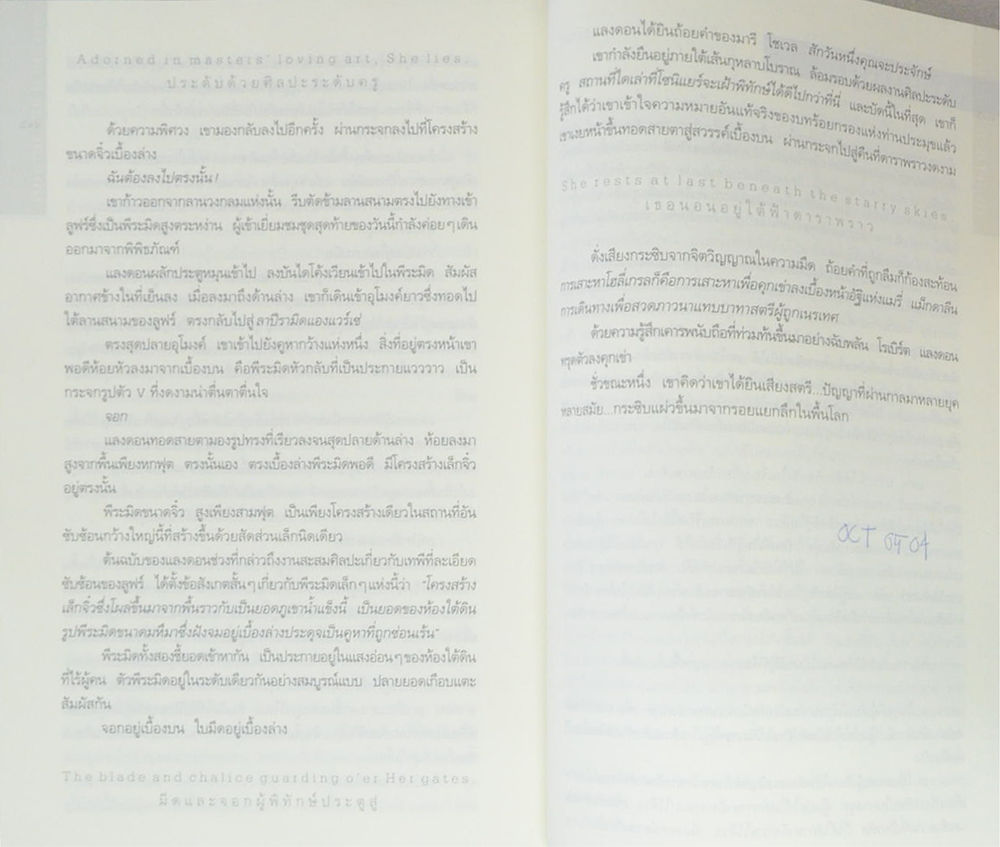 Adorned in masters' loving art, She lies.
ประดับด้วยศิลปะระดับครู
ด้วยความพิศวง เขามองกลับลงไปอีกครั้ง ผ่านกระจกลงไปที่โครงสร้าง
ขนาดจิ๋วเบื้องล่าง
ฉันต้องลงไปตรงนั้น!
เขาก้าวออกจากลานวงกลมแห่งนั้น รีบตัดข้ามลานสนามตรงไปยังทางเข้า
ลูฟร์ซึ่งเป็นพีระมิดสูงตระหง่าน ผู้เข้าเยี่ยมชมชุดสุดท้ายของวันนี้กำลังค่อยๆ เดิน
ออกมาจากพิพิธภัณฑ์
แลงดอนผลักประตูหมุนเข้าไป ลงบันไดโค้งเวียนเข้าไปในพีระมิด สัมผัส
อากาศข้างในที่เย็นลง เมื่อลงมาถึงด้านล่าง เขาก็เดินเข้าอุโมงค์ยาวซึ่งทอดไป
ใต้ลานสนามของลูฟร์ ตรงกลับไปสู่ ลาปิรามิดแองแวร์เซ่
ตรงสุดปลายอุโมงค์ เขาเข้าไปยังคูหากว้างแห่งหนึ่ง สิ่งที่อยู่ตรงหน้าเขา
พอดีห้อยหัวลงมาจากเบื้องบน คือพีระมิดหัวกลับที่เป็นประกายแวววาว เป็น
กระจกรูปตัว V ที่งดงามน่าตื่นตาตื่นใจ
จอก
แลงดอนทอดสายตามองรูปทรงที่เรียวลงจนสุดปลายด้านล่าง ห้อยลงมา
สูงจากพื้นเพียงหกฟุต ตรงนั้นเอง ตรงเบื้องล่างพีระมิดพอดี มีโครงสร้างเล็กจิ๋ว
อยู่ตรงนั้น
พีระมิดขนาดจิ๋ว สูงเพียงสามฟุต เป็นเพียงโครงสร้างเดียวในสถานที่อัน
ซับซ้อนกว้างใหญ่นี้ที่สร้างขึ้นด้วยสัดส่วนเล็กนิดเดียว
ต้นฉบับของแลงดอนช่วงที่กล่าวถึงงานสะสมศิลปะเกี่ยวกับเทพีที่ละเอียด
ซับซ้อนของลูฟร์ ได้ตั้งข้อสังเกตสั้นๆ เกี่ยวกับพีระมิดเล็กๆ แห่งนี้ว่า "โครงสร้าง
เล็กจิ๋วซึ่งโผล่ขึ้นมาจากพื้นราวกับเป็นยอดภูเขาน้ำแข็งนี้ เป็นยอดของห้องใต้ดิน
รูปพีระมิดขนาดมหึมาซึ่งฝังจมอยู่เบื้องล่างประดุจเป็นคูหาที่ถูกซ่อนเร้น"
พีระมิดทั้งสองชี้ยอดเข้าหากัน เป็นประกายอยู่ในแสงอ่อนๆ ของห้องใต้ดิน
ที่ไร้ผู้คน ตัวพีระมิดอยู่ในระดับเดียวกันอย่างสมบูรณ์แบบ ปลายยอดเกือบแตะ
สัมผัสกัน
จอกอยู่เบื้องบน ใบมีดอยู่เบื้องล่าง
The blade and chalice guarding o'er Her gates.
มีดและจอกผู้พิทักษ์ประตูสู่
แลงดอนได้ยินถ้อยคำของมารี โชเวล สักวันหนึ่งคุณจะประจักษ์
เขากำลังยืนอยู่ภายใต้เส้นกุหลาบโบราณ ล้อมรอบด้วยผลงานศิลปะระดับ
ครู สถานที่ใดเล่าที่โซนิแยร์จะเฝ้าพิทักษ์ได้ดีไปกว่าที่นี่ และบัดนี้ในที่สุด เขาก็
รู้สึกได้ว่าเขาเข้าใจความหมายอันแท้จริงของบทร้อยกรองแห่งท่านประมุขแล้ว
เขาเงยหน้าขึ้นทอดสายตาสู่สวรรค์เบื้องบน ผ่านกระจกไปสู่คืนที่ดาราพราวงดงาม
She rests at last beneath the starry skies.
เธอนอนอยู่ใต้ฟ้าดาราพราว
ดั่งเสียงกระซิบจากจิตวิญญาณในความมืด ถ้อยคำที่ถูกลืมก็ก้องสะท้อน
การเสาะหาโฮลี่เกรลก็คือการเสาะหาเพื่อคุกเข่าลงเบื้องหน้าอัฐิแห่งแมรี่ แม็กดาลีน
การเดินทางเพื่อสวดภาวนาแทบบาทาสตรีผู้ถูกเนรเทศ
ด้วยความรู้สึกเคารพนับถือที่ท่วมท้นขึ้นมาอย่างฉับพลัน โรเบิร์ต แลงดอน
ทรุดตัวลงคุกเข่า
ชั่วขณะหนึ่ง เขาคิดว่าเขาได้ยินเสียงสตรี...ปัญญาที่ผ่านกาลมาหลายยุค
หลายสมัย...กระซิบแผ่วขึ้นมาจากรอยแยกลึกในพื้นโลก
OCT 04